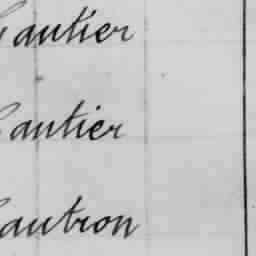 Gautier
Gautier
Gautron